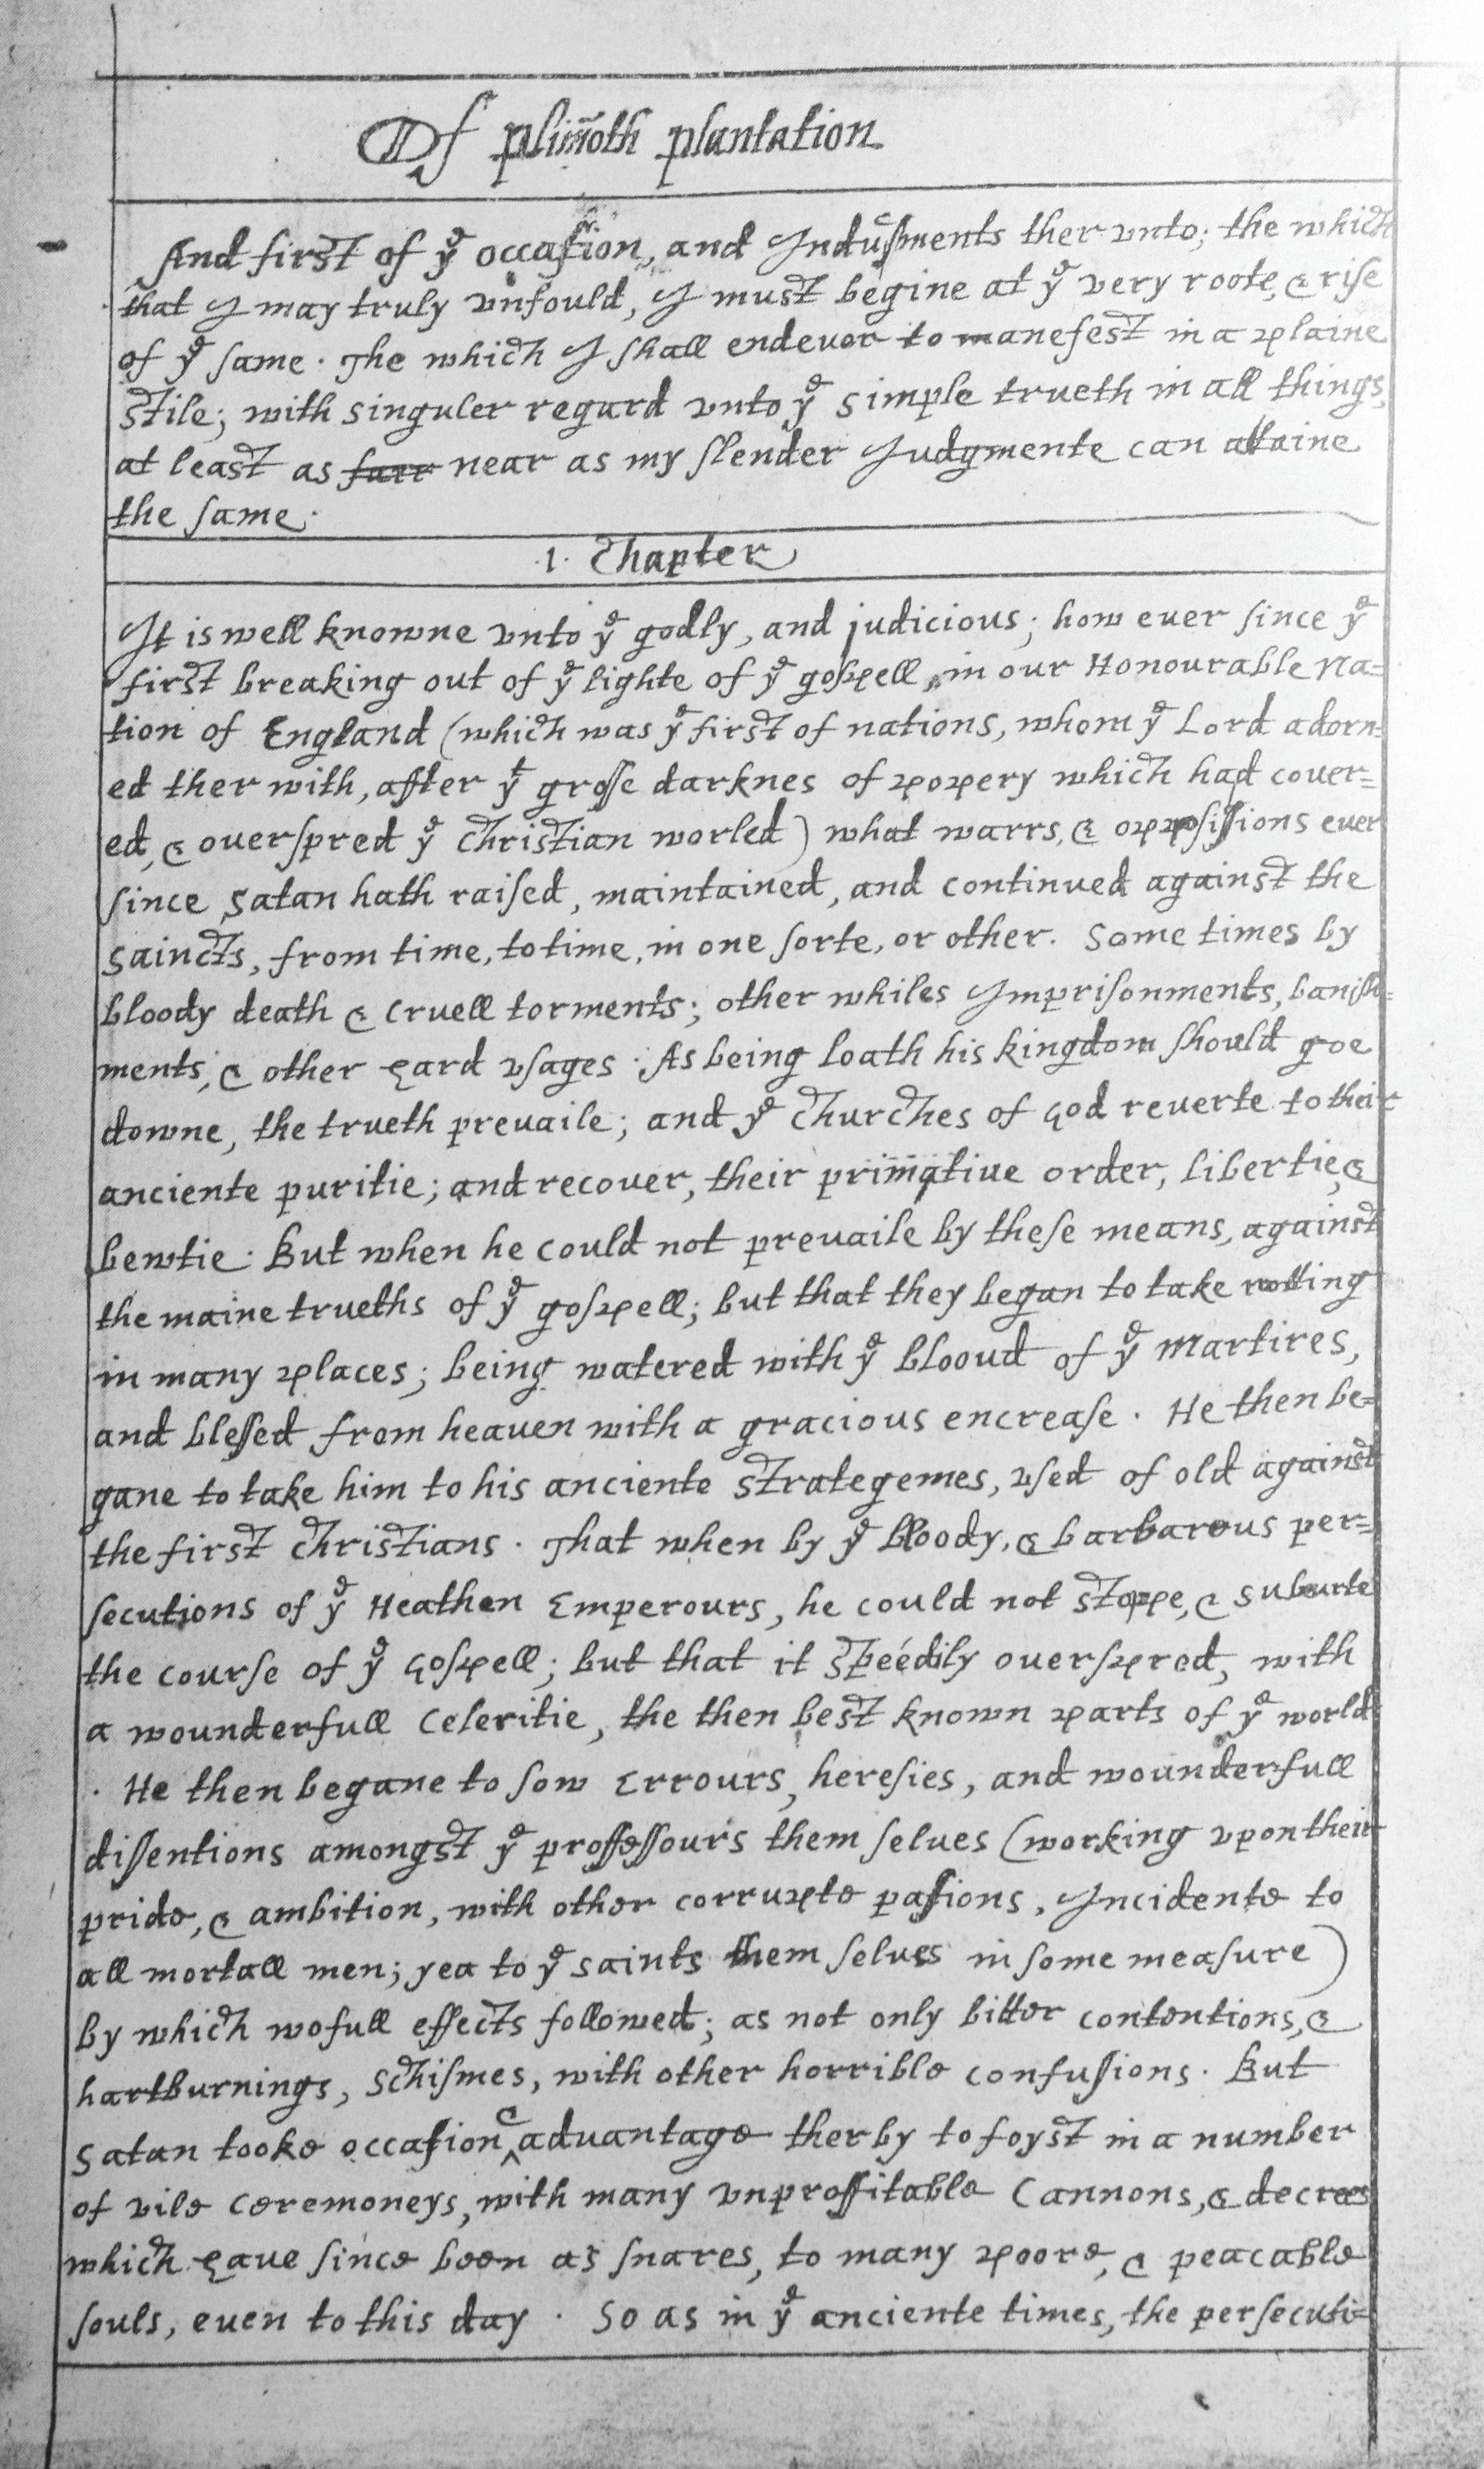 Of plim̃oth plantation
And first of yᵉ occasion, and Inducments ther unto; the which
that I may truly unfould, I must begine at yᵉ very roote, & rise
of yᵉ same. The which I shall endevor to manefest in a plaine
stile; with singuler regard unto yᵉ simple trueth in all things,
at least as ~~farr~~ near as my slender Judgmente can attaine
the same.
.1. Chapter
It is well knowne unto yᵉ godly, and judicious; how ever since yᵉ
first breaking out of yᵉ lighte of yᵉ gospell, in our Honourable Na=
tion of England (which was yᵉ first of nations, whom yᵉ Lord adorn=
ed ther with, after yᵗ grosse darknes of popery which had cover=
ed, & overspred yᵉ Christian worled) what warrs, & oppossisions ever
since Satan hath raised, maintained, and continued against the
Saincts, from time, to time, in one sorte, or other. Some times by
bloody death & cruell torments; other whiles Imprisonments, banish=
ments, & other hard usages. As being loath his kingdom should goe
downe, the trueth prevaile; and yᵉ Churches of God reverte to their
anciente puritie; and recover, their primative order, libertie, &
bewtie. But when he could not prevaile by these means, against
the maine trueths of yᵉ gospell; but that they began to take rotting
in many places; being watered with yᵉ bloud of yᵉ Martires,
and blessed from heaven with a gracious encrease. He then be=
gane to take him to his anciente strategemes, used of old against
the first Christians. That when by yᵉ bloody, & barbarous per=
secutions of yᵉ Heathen Emperours, he could not stoppe, & subuerte
the course of yᵉ Gospell; but that it speedily overspred, with
a wounderfull celeritie, the then best known parts of yᵉ world
. He then begane to sow Errours, heresies, and wounderfull
dissentions amongst yᵉ proffessours them selves (working upon their
pride, & ambition, with other corrupte passions, Incidente to
all mortall men; yea to yᵉ saints them selves in some measure)
by which wofull effects followed; as not only bitter contentions, &
hartburnings, schismes, with other horrible confusions. But
Satan tooke occasion & advantage therby to foyst in a number
of vile ceremoneys, with many unproffitable Cannons, & decrees
which have since been as snares, to many poore, & peacable
souls, even to this day. So as in yᵉ anciente times, the persecuti=